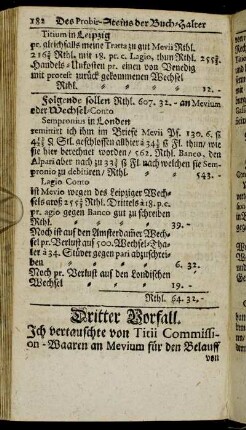 182 Des Probir-Steins der Buch-Halter
Titium in Leipzig
pr. gleichfalls meine Tratta zu gut Mevii Rthl.
216¾ Rthl. mit 18. pr. c. Lagio, thun Rthl. 255¾.
Handels-Unkosten pr. einen von Venedig
mit protest zurück gekommenen Wechsel
Rthl. 12. -
Folgende sollen Rthl. 607. 32. - an Mevium
oder Wechsel-Conto
Sempronius in London
remittirt ich ihm im Briefe Mevii Pf. 130. 6. ß
Stl. geschlossen allhier à 34⅔ ß Fl. thun, wie
sie hier berechnet worden, 562. Rthl. Banco, den
Al pari aber nach zu 33⅓ ß Fl. nach welchen sie Sem-
pronio zu debitiren, Rthl. 543. -
Lagio Conto
ist Mevio wegen des Leipziger Wech-
sels groß 255¾ Rthl. Drittels à 18. p. c.
pr. agio gegen Banco gut zu schreiben
Rthl. 39. -
Noch ist auf den Amsterdamer Wech-
sel pr. Verlust auf 500. Wechsel-Tha-
ler à 34. Stüver gegen pari abzuschrei-
ben 6. 32.
Noch pr. Verlust auf den Londischen
Wechsel 19. -
Rthl. 64. 32. -
Dritter Vorfall.
Ich vertauschte von Titii Commissi-
on-Waaren an Mevium für den Belauff
von